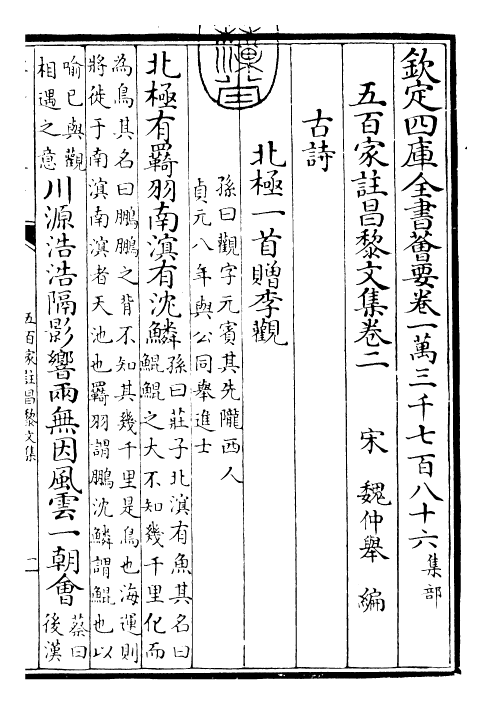 欽定四庫全書薈要卷一萬三千七百八十六集部
五百家註昌黎文集卷二
宋 魏仲舉 編
古詩
北極一首贈李觀
孫曰觀字元賓其先隴西人
貞元八年與公同舉進士
北極有羇羽南滇有沈鱗
孫曰莊子北滇有魚其名曰
鯤鯤之大不知幾千里化而
為鳥其名曰鵬鵬之背不知其幾千里是鳥也海運則
將徙于南滇南滇者天池也羇羽謂鵬沈鱗謂鯤也以
喻已與觀
相遇之意
川源浩浩隔影響兩無因風雲一朝會
蔡曰
後漢
五百家註昌黎文集
一